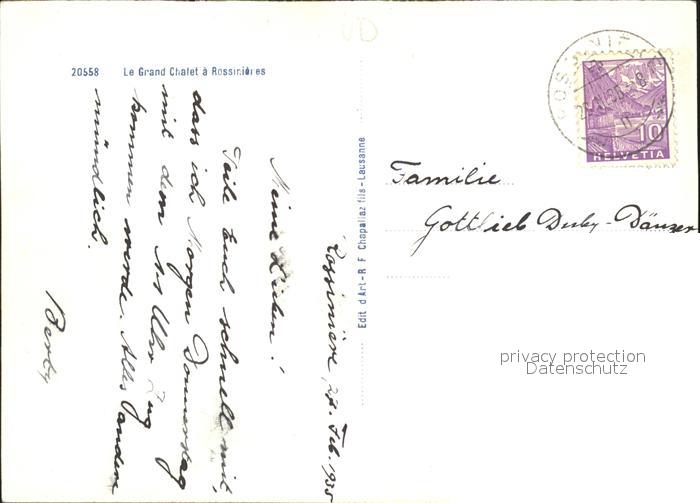 20558 Le Grand Chalet à Rossinières
Rossinière, 27. Feb. 1935
Meine Lieben!
Teile Euch schnell mit,
dass ich Morgen Donnerstag
mit dem Uhr Zug
kommen werde. Alles andere
mündlich
Edit d'Art - R. F. Chapallaz fils - Lausanne
10
HELVETIA
Familie
Gottlieb - Dänzer
privacy protection
Datenschutz